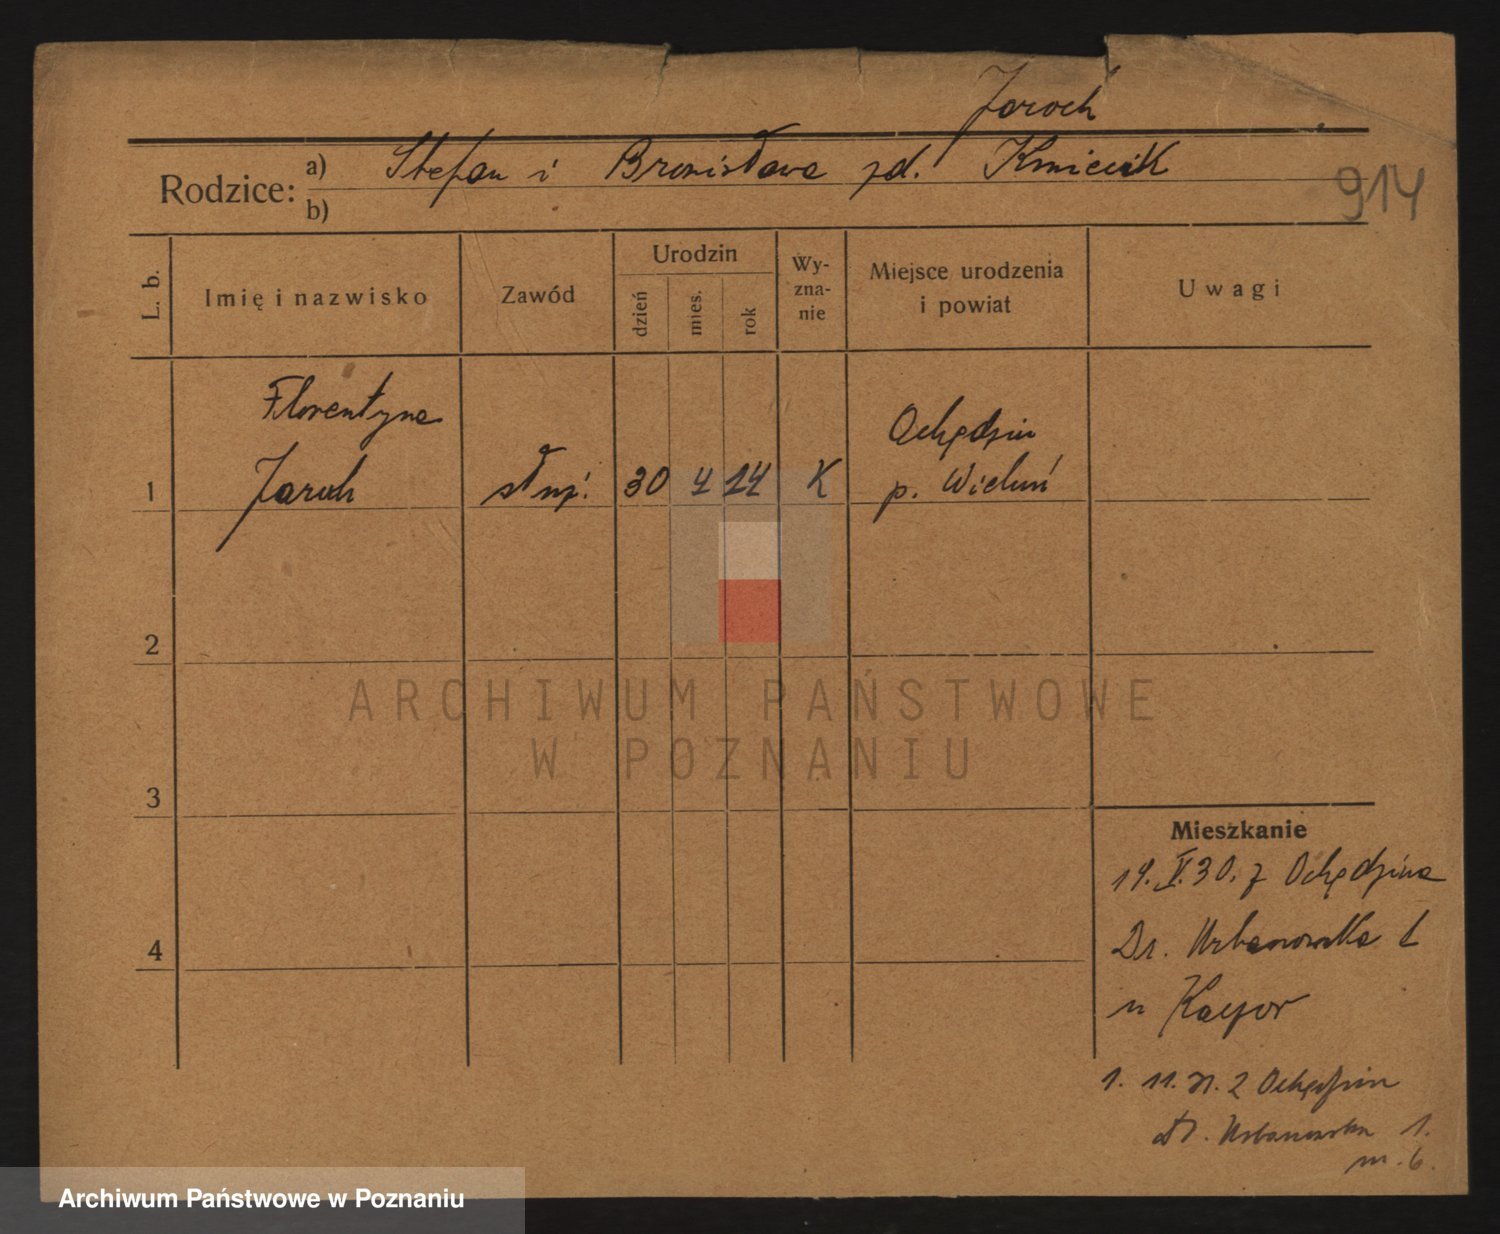 Jaroch
Rodzice: a) Stefan i Bronisława zd. Kmiecik
b)
914
L. b.
Imię i nazwisko
Zawód
Urodzin
dzień
mies.
rok
Wy-
zna-
nie
Miejsce urodzenia
i powiat
Uwagi
Florentyna
Ochędzin
1 Jaroch służ. 30 4 14 K p. Wieluń
2
3
4
ARCHIWUM PAŃSTWOWE
W POZNANIU
Mieszkanie
19. V. 30. z Ochędzina
Dr. Urbanowska 1
u Kacpor
1. 11. 31. z Ochędzin
Dr. Urbanowska 1.
m. 6.
Archiwum Państwowe w Poznaniu